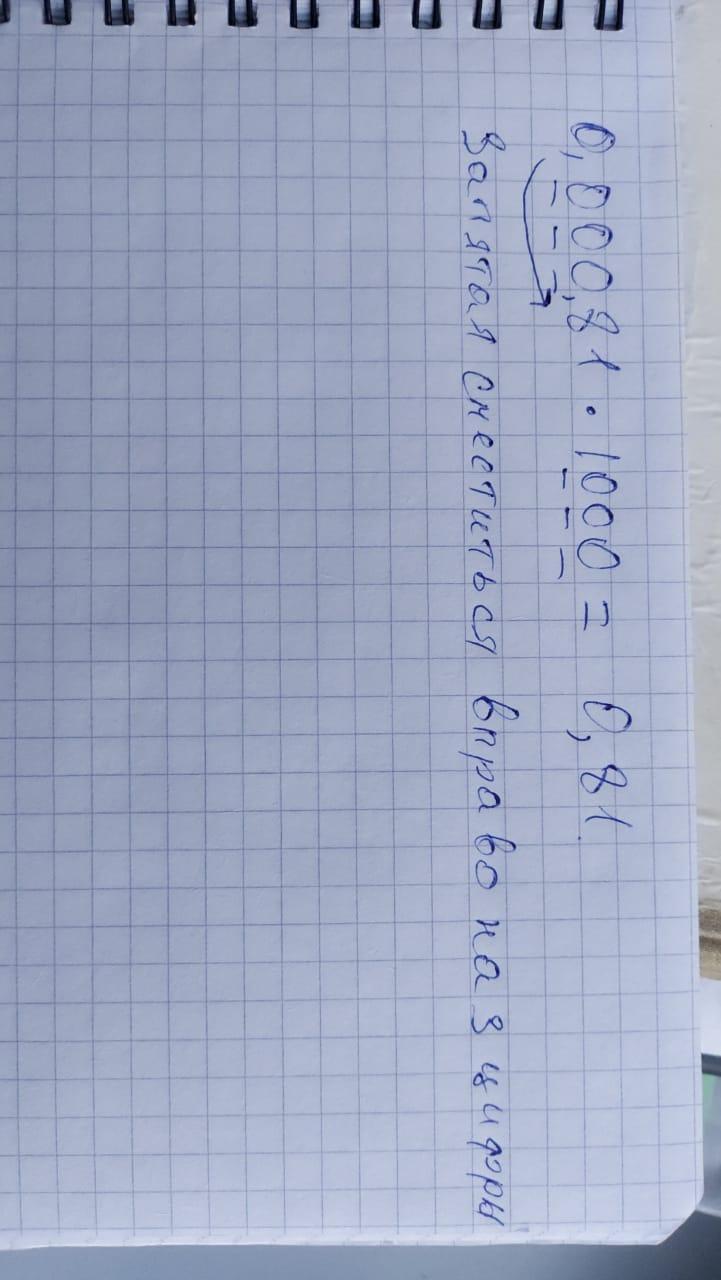 0,000,81 · 1000 = 0,81
Запятая сместиться вправо на 3 цифры